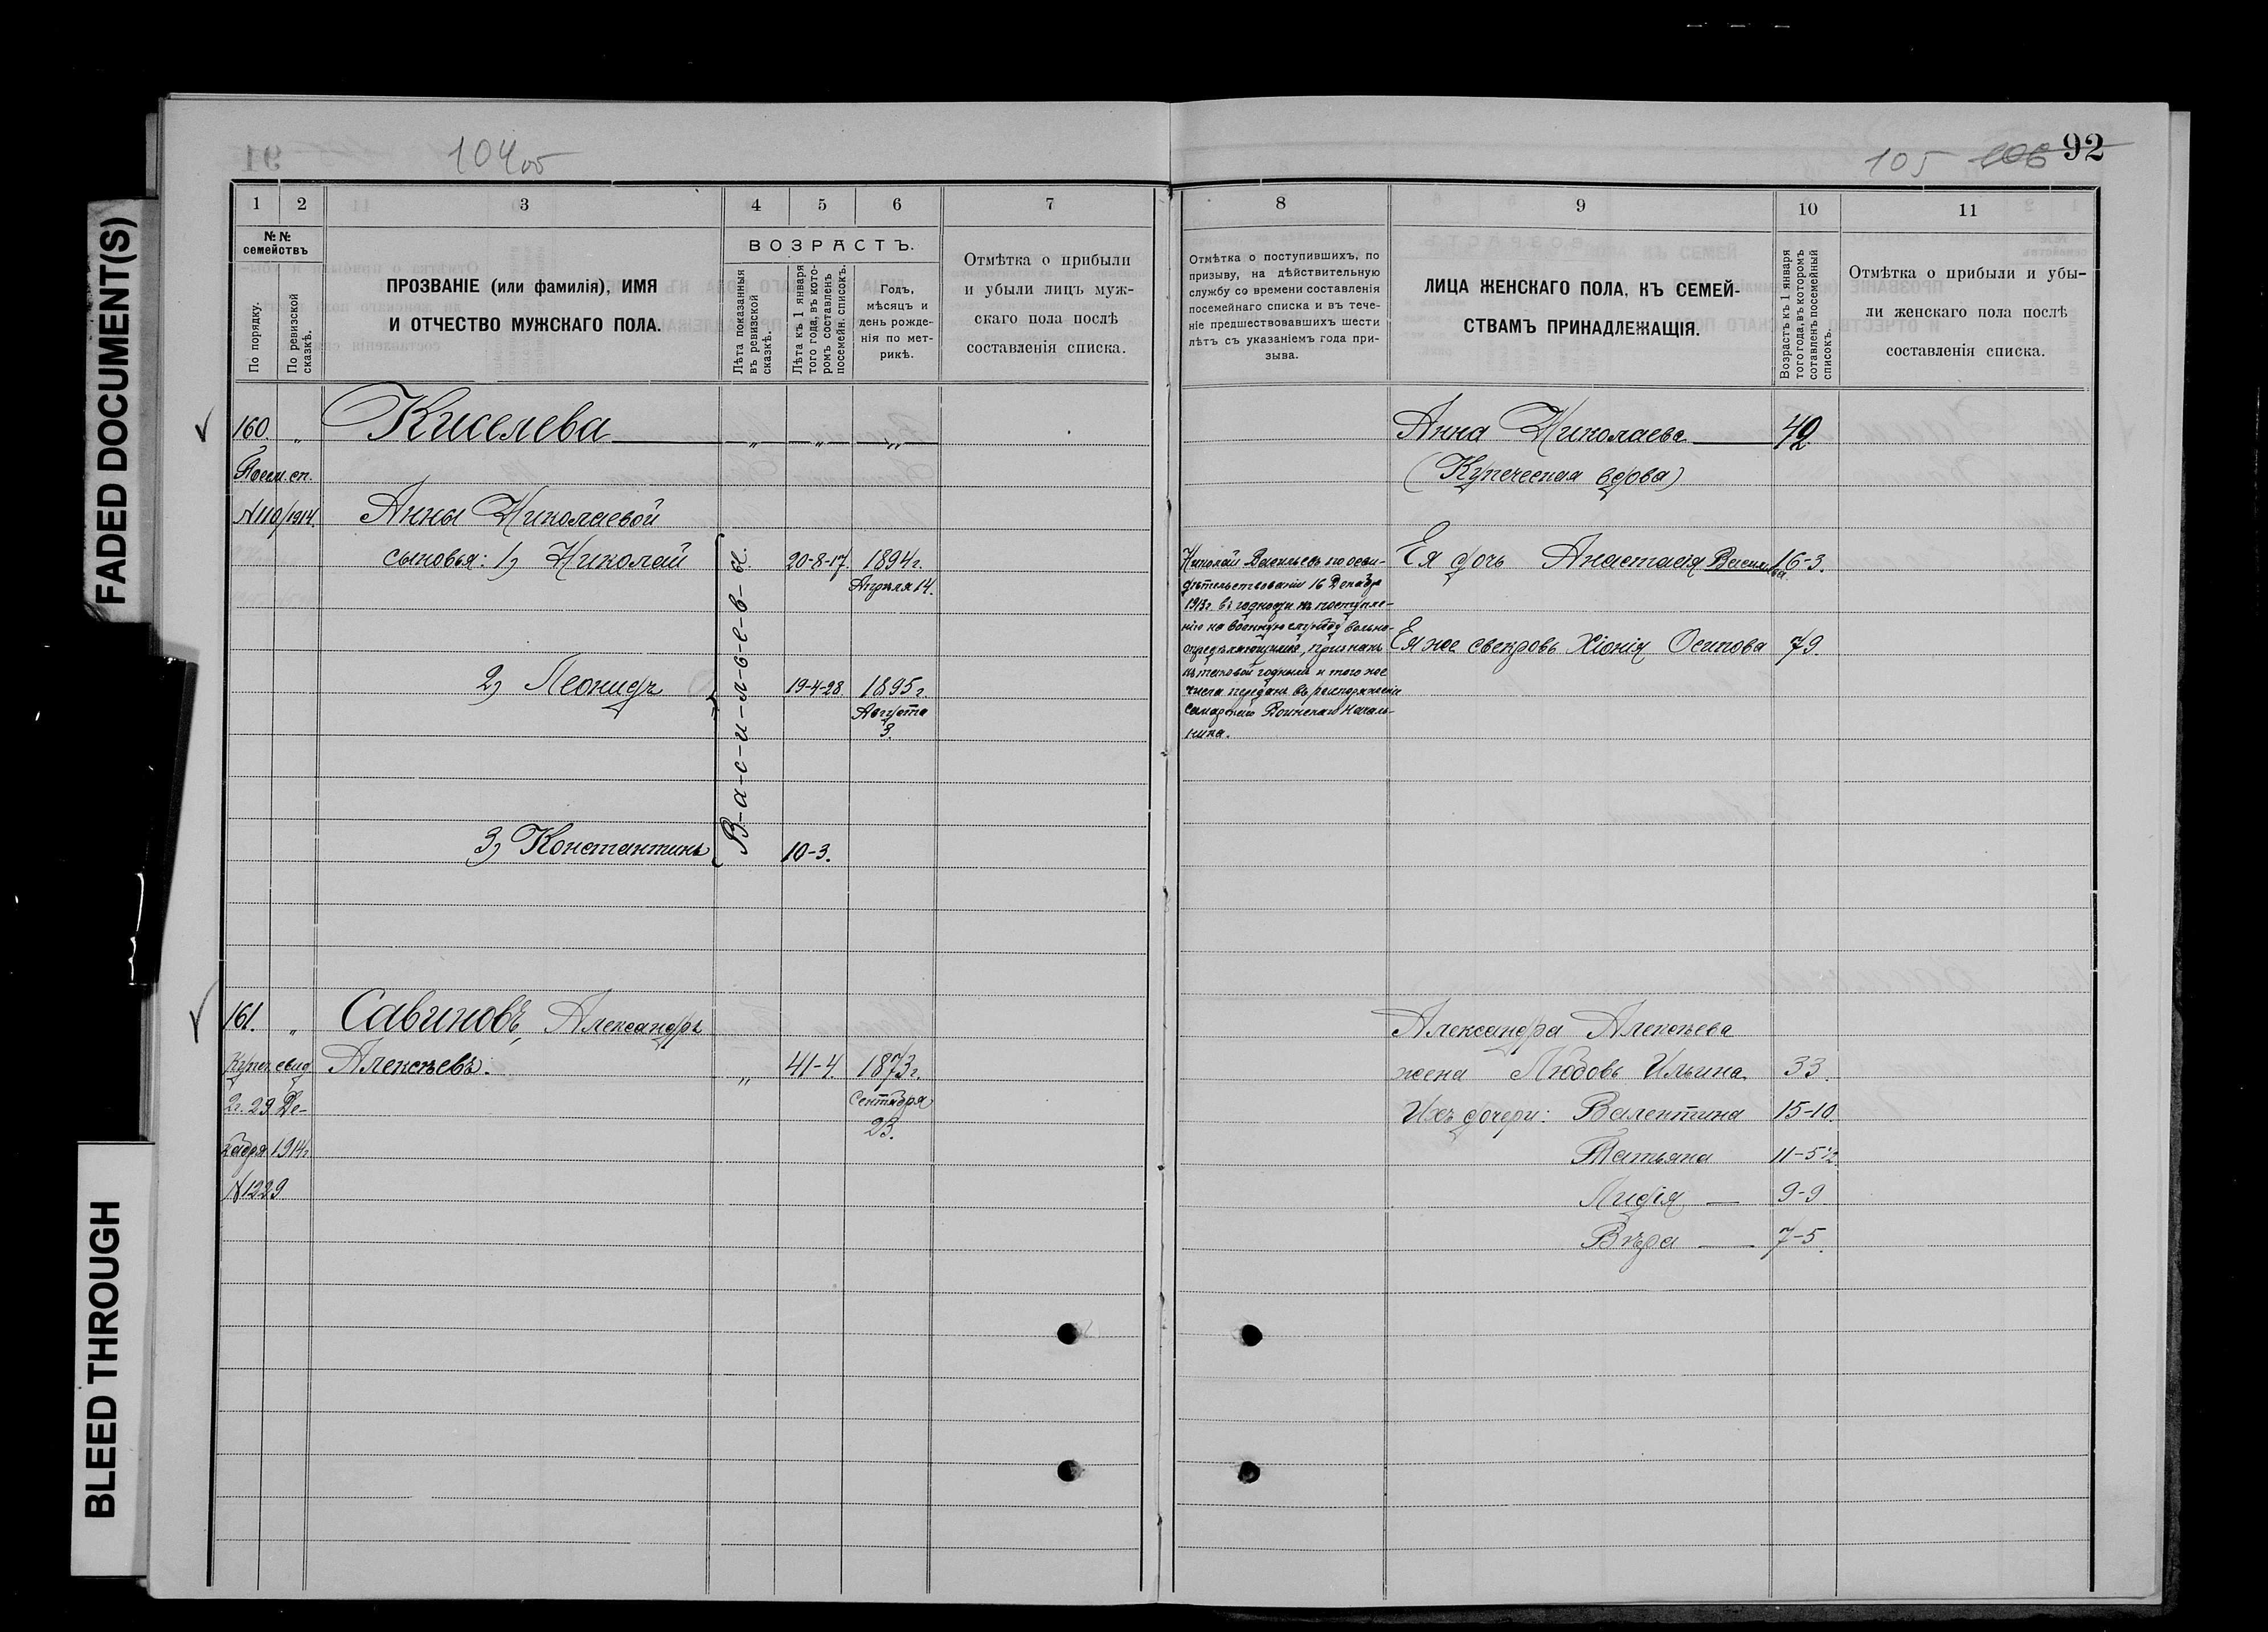 FADED DOCUMENT(S)
BLEED THROUGH
91
104
105 106 92
1 2 3 4 5 6 7
№№ семействъ
По порядку.
По ревизской сказкѣ.
ПРОЗВАНІЕ (или фамилія), ИМЯ
И ОТЧЕСТВО МУЖСКАГО ПОЛА.
ВОЗРАСТЪ.
Лѣта показанныя въ ревизской сказкѣ.
Лѣта къ 1 января того года, въ кото-
ромъ составленъ посемейн. списокъ.
Годъ,
мѣсяцъ и
день рожде-
нія по мет-
рикѣ.
Отмѣтка о прибыли
и убыли лицъ муж-
скаго пола послѣ
составленія списка.
160. „ Киселева „ „ „
Посем. сп.
№110/1914.
Анны Николаевой
сыновья: 1) Николай 20-8-17. 1894 г.
Апрѣля 14.
2) Леонидъ 19-4-28 1895 г.
Августа
3.
3) Константинъ 10-3.
В-а-с-и-л-ь-е-в-ы.
161. „ Савиновъ, Александръ
Купеч. свид. Алексѣевъ. „ 41-4. 1873 г.
2 г. 29 Де- Сентября
кабря 1914 г. 23.
№1229
8 9 10 11
Отмѣтка о поступившихъ, по
призыву, на дѣйствительную
службу со времени составленія
посемейнаго списка и въ тече-
ніе предшествовавшихъ шести
лѣтъ съ указаніемъ года при-
зыва.
ЛИЦА ЖЕНСКАГО ПОЛА, КЪ СЕМЕЙ-
СТВАМЪ ПРИНАДЛЕЖАЩІЯ.
Возрастъ къ 1 января
того года, въ которомъ
сотавленъ посемейный
списокъ.
Отмѣтка о прибыли и убы-
ли женскаго пола послѣ
составленія списка.
Анна Николаева 49
(Купеческая вдова)
Ея дочь Анастасія Васильева. 16-3.
Ея же свекровь Хіонія Осипова 79.
Николай Васильевъ по осви-
дѣтельствованіи 16 Декабря
1913 г. въ годности къ поступле-
нію на военную службу вольно-
опредѣляющимся, признанъ
къ таковой годнымъ и того же
числа переданъ въ распоряженіе
Самарскаго Воинскаго Началь-
ника.
Александра Алексѣева
жена Любовь Ильина 33.
Ихъ дочери: Валентина 15-10.
Татьяна 11-5½.
Лидія 9-9
Вѣра 7-5.